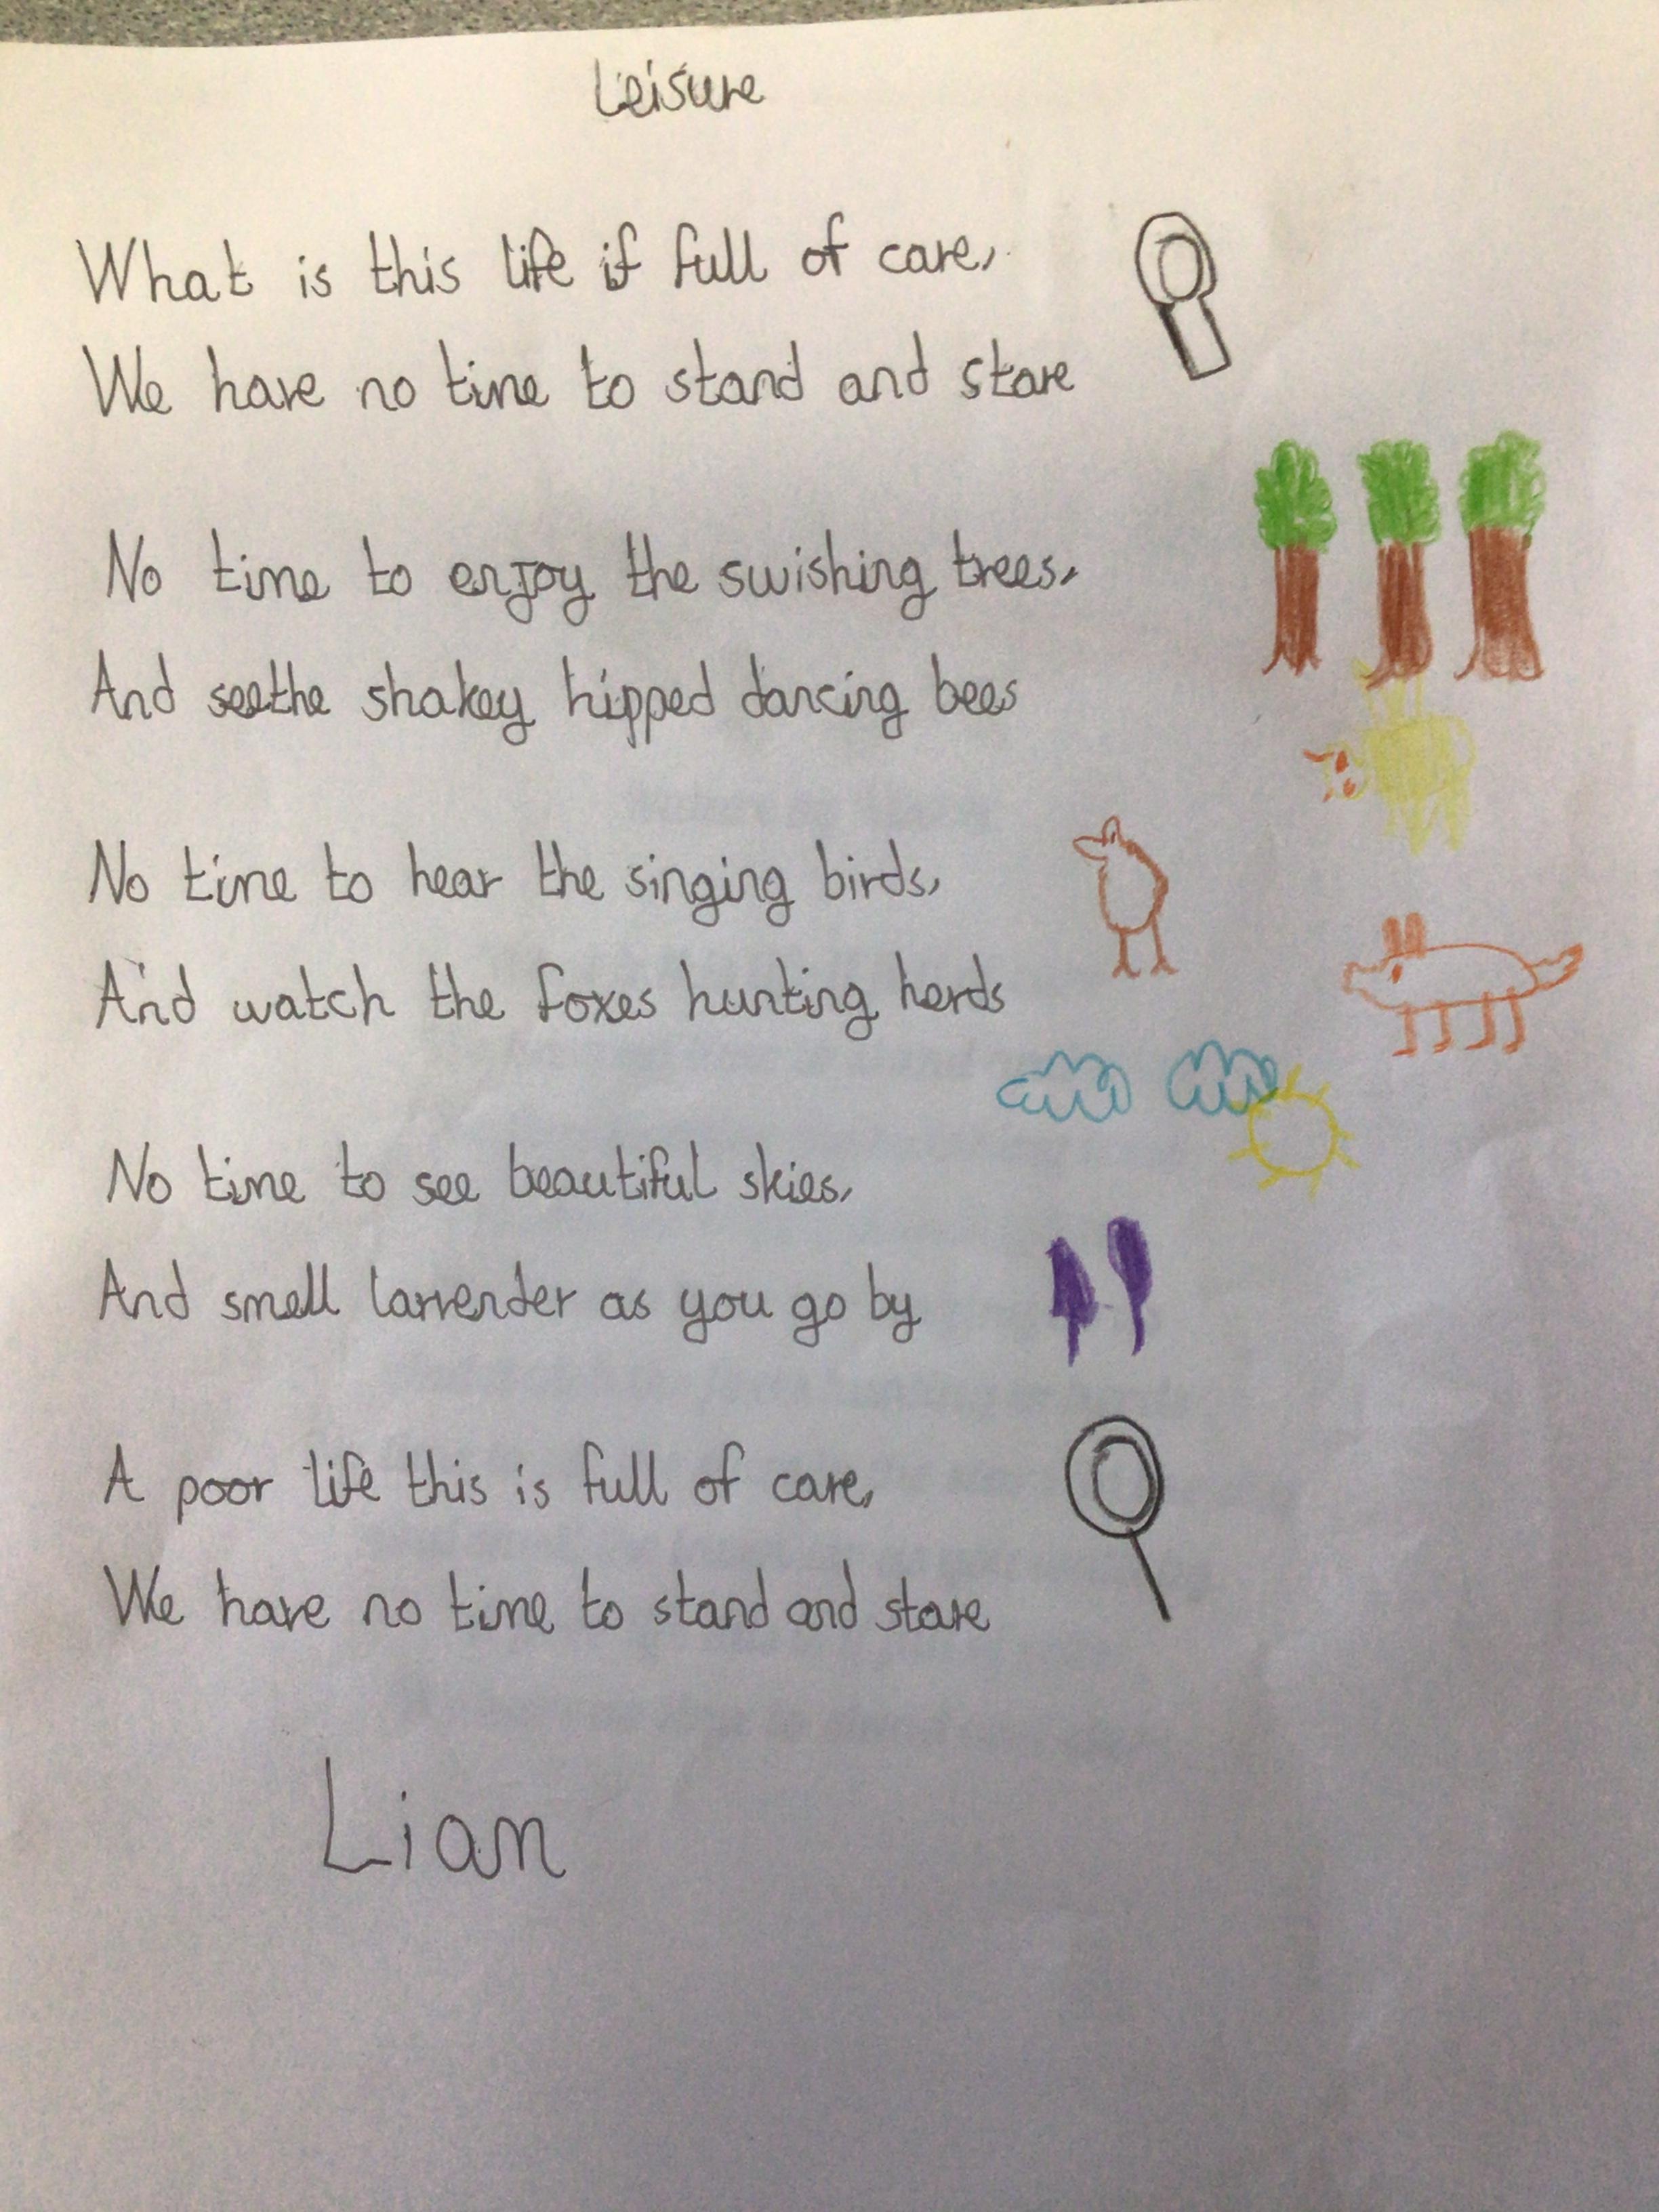 Leisure
What is this life if full of care,
We have no time to stand and stare
No time to enjoy the swishing trees,
And see the shakey hipped dancing bees
No time to hear the singing birds,
And watch the foxes hunting herds
No time to see beautiful skies,
And smell larvender as you go by
A poor life this is full of care,
We have no time to stand and stare
Liam